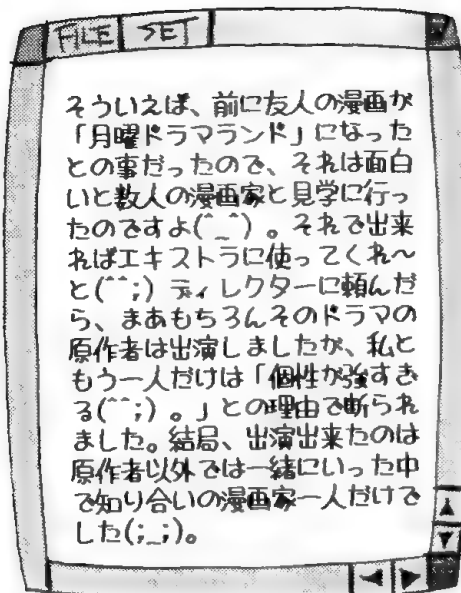 FILE SET
そういえば、前に友人の漫画が
「月曜ドラマランド」になった
との事だったので、それは面白
いと数人の漫画家と見学に行っ
たのですよ(^_^)。それで出来
ればエキストラに使ってくれ〜
と(^^;)ディレクターに頼んだ
ら、まあもちろんそのドラマの
原作者は出演しましたが、私と
もう一人だけは「個性が強すぎ
る(^^;)。」との理由で断られ
ました。結局、出演出来たのは
原作者以外では一緒にいった中
で知り合いの漫画家一人だけで
した(;_;)。